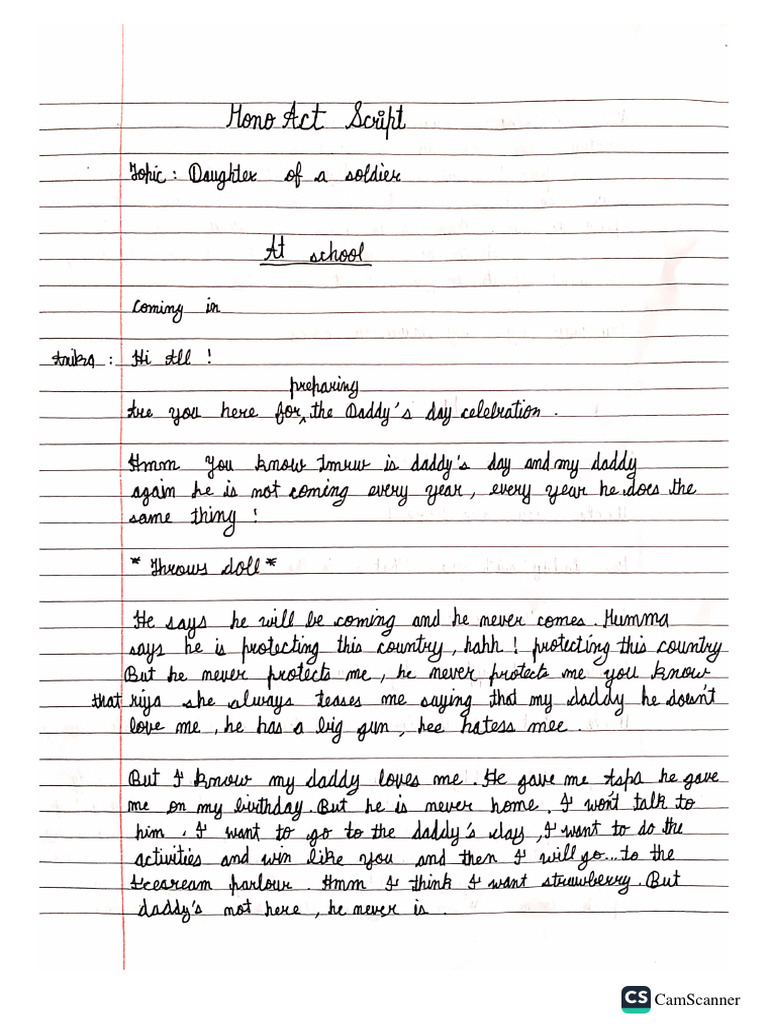 Mono Act Script
Topic: Daughter of a soldier
At school
Coming in
Anika: Hi All!
preparing
Are you here for ^ the Daddy's day celebration.
Hmm you know Tmrw is daddy's day and my daddy
again he is not coming every year, every year he does the
same thing!
*Throws doll*
He says he will be coming and he never comes. Mumma
says he is protecting this country, hahh! protecting this country
But he never protects me, he never protects me you know
that riya she always teases me saying that my daddy he doesn't
love me, he has a big gun, hee hatess mee.
But I know my daddy loves me. He gave me Aspa he gave
me on my birthday. But he is never home. I won't talk to
him. I want to go to the daddy's day, I want to do the
activities and win like you and then I will go...to the
Icecream parlour. Hmm I think I want strawberry. But
daddy's not here, he never is.
CS CamScanner